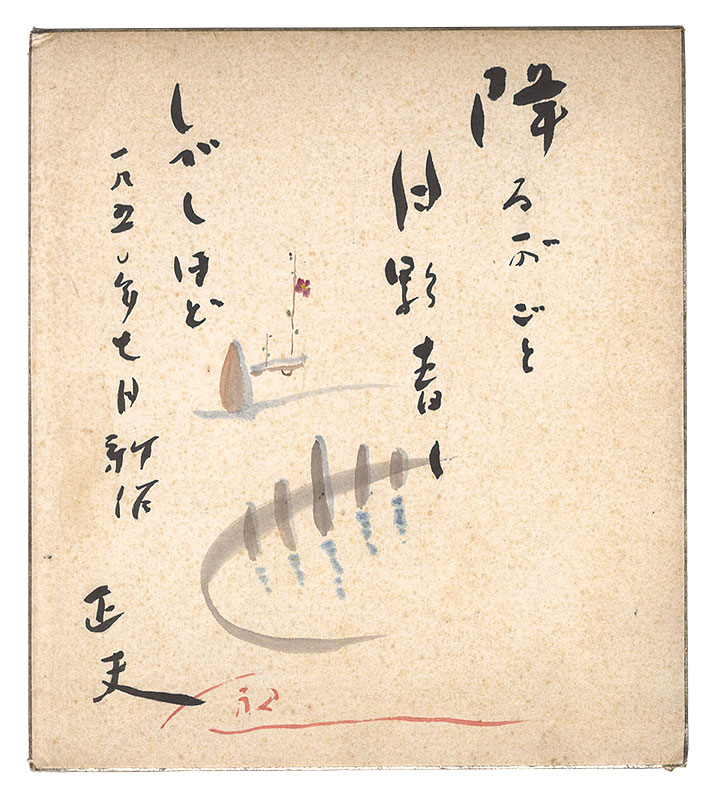 降るがごと
月影青し
しがしほど
一九五〇年七月新作
正夫